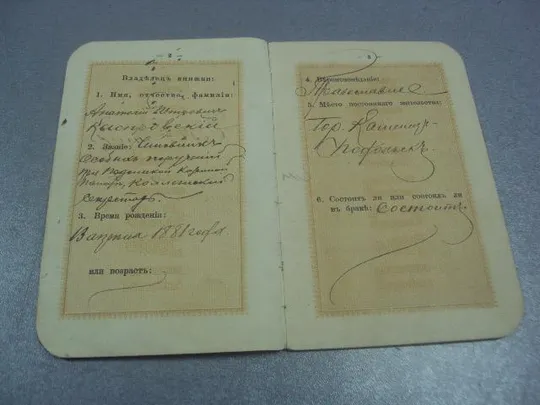 — 2 —
Владѣлецъ книжки:
1. Имя, отчество, фамилія:
Анатолій Петровичъ
2. Званіе: Чиновникъ
Особыхъ порученій
при Подольской Казенной
Палатѣ, Коллежскій
Секретарь.
3. Время рожденія:
13 апрѣля 1881 года
или возрастъ:
4. Вѣроисповѣданіе:
Православное.
5. Мѣсто постояннаго жительства:
Гор. Каменецъ-
Подольскъ.
6. Состоитъ ли или состоялъ ли
въ бракѣ: Состоитъ